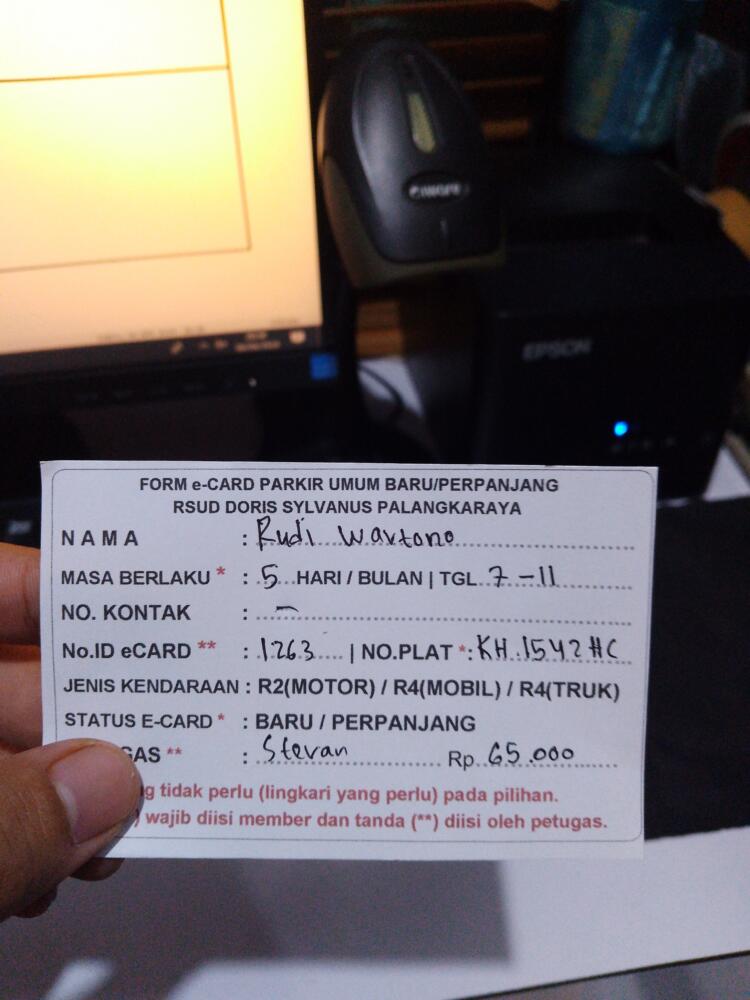 EPSON
FORM e-CARD PARKIR UMUM BARU/PERPANJANG
RSUD DORIS SYLVANUS PALANGKARAYA
NAMA : Rudi Wartono
MASA BERLAKU * : 5 HARI / BULAN | TGL. 7 - 11
NO. KONTAK : -
No.ID eCARD ** : 1263 | NO.PLAT *: KH.1542 HC
JENIS KENDARAAN : R2(MOTOR) / R4(MOBIL) / R4(TRUK)
STATUS E-CARD * : BARU / PERPANJANG
GAS ** : Stevan Rp. 65.000
g tidak perlu (lingkari yang perlu) pada pilihan.
) wajib diisi member dan tanda (**) diisi oleh petugas.